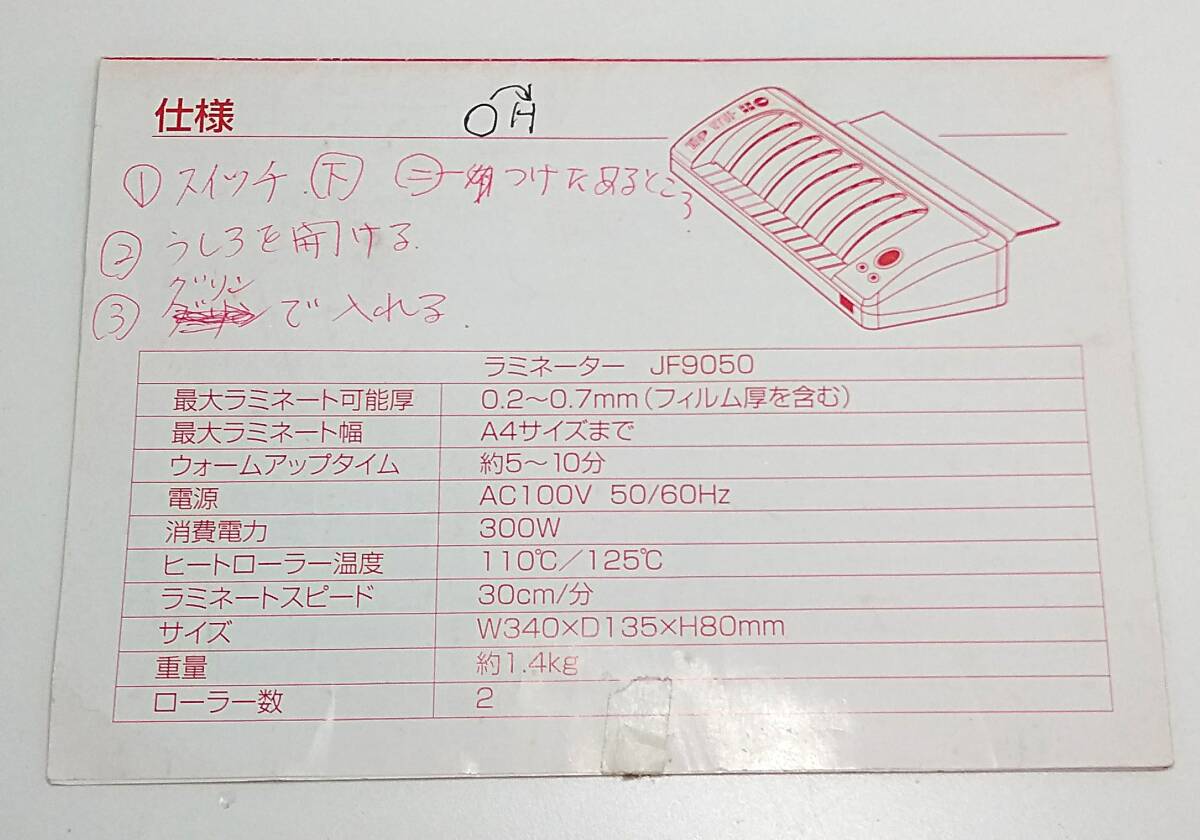 仕様
① スイッチ 下 ㊁ つけたあるところ
② うしろを開ける
グリン
③ で入れる
ラミネーター JF9050
最大ラミネート可能厚 0.2～0.7mm(フィルム厚を含む)
最大ラミネート幅 A4サイズまで
ウォームアップタイム 約5～10分
電源 AC100V 50/60Hz
消費電力 300W
ヒートローラー温度 110℃／125℃
ラミネートスピード 30cm/分
サイズ W340×D135×H80mm
重量 約1.4kg
ローラー数 2